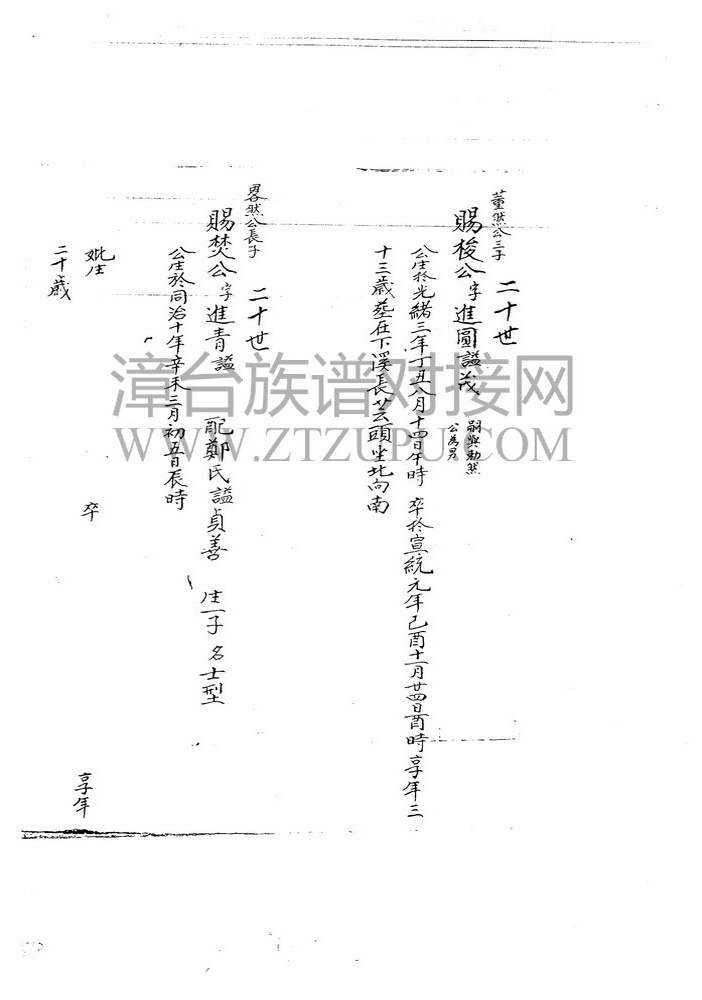 董然公三子
二十世
賜梭公字進圓謚茂
嗣與勳然
公為男
公生於光緒三年丁丑八月十四日午時 卒於宣統元年己酉十一月廿四日酉時享年三
十三歲葬在下溪長 頭坐北向南
畧然公長子
二十世
賜焚公字進青謚 配鄭氏謚貞善 生一子名士型
公生於同治十年辛未三月初五日辰時
妣生 卒 享年
二十歲
漳台族谱对接网
WWW.ZTZUPU.COM